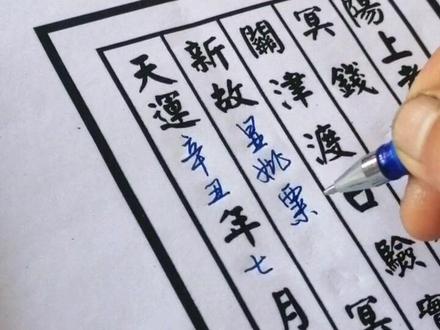 陽上
冥錢
關津渡口驗實
新故显姚票冥
天運辛丑年七月